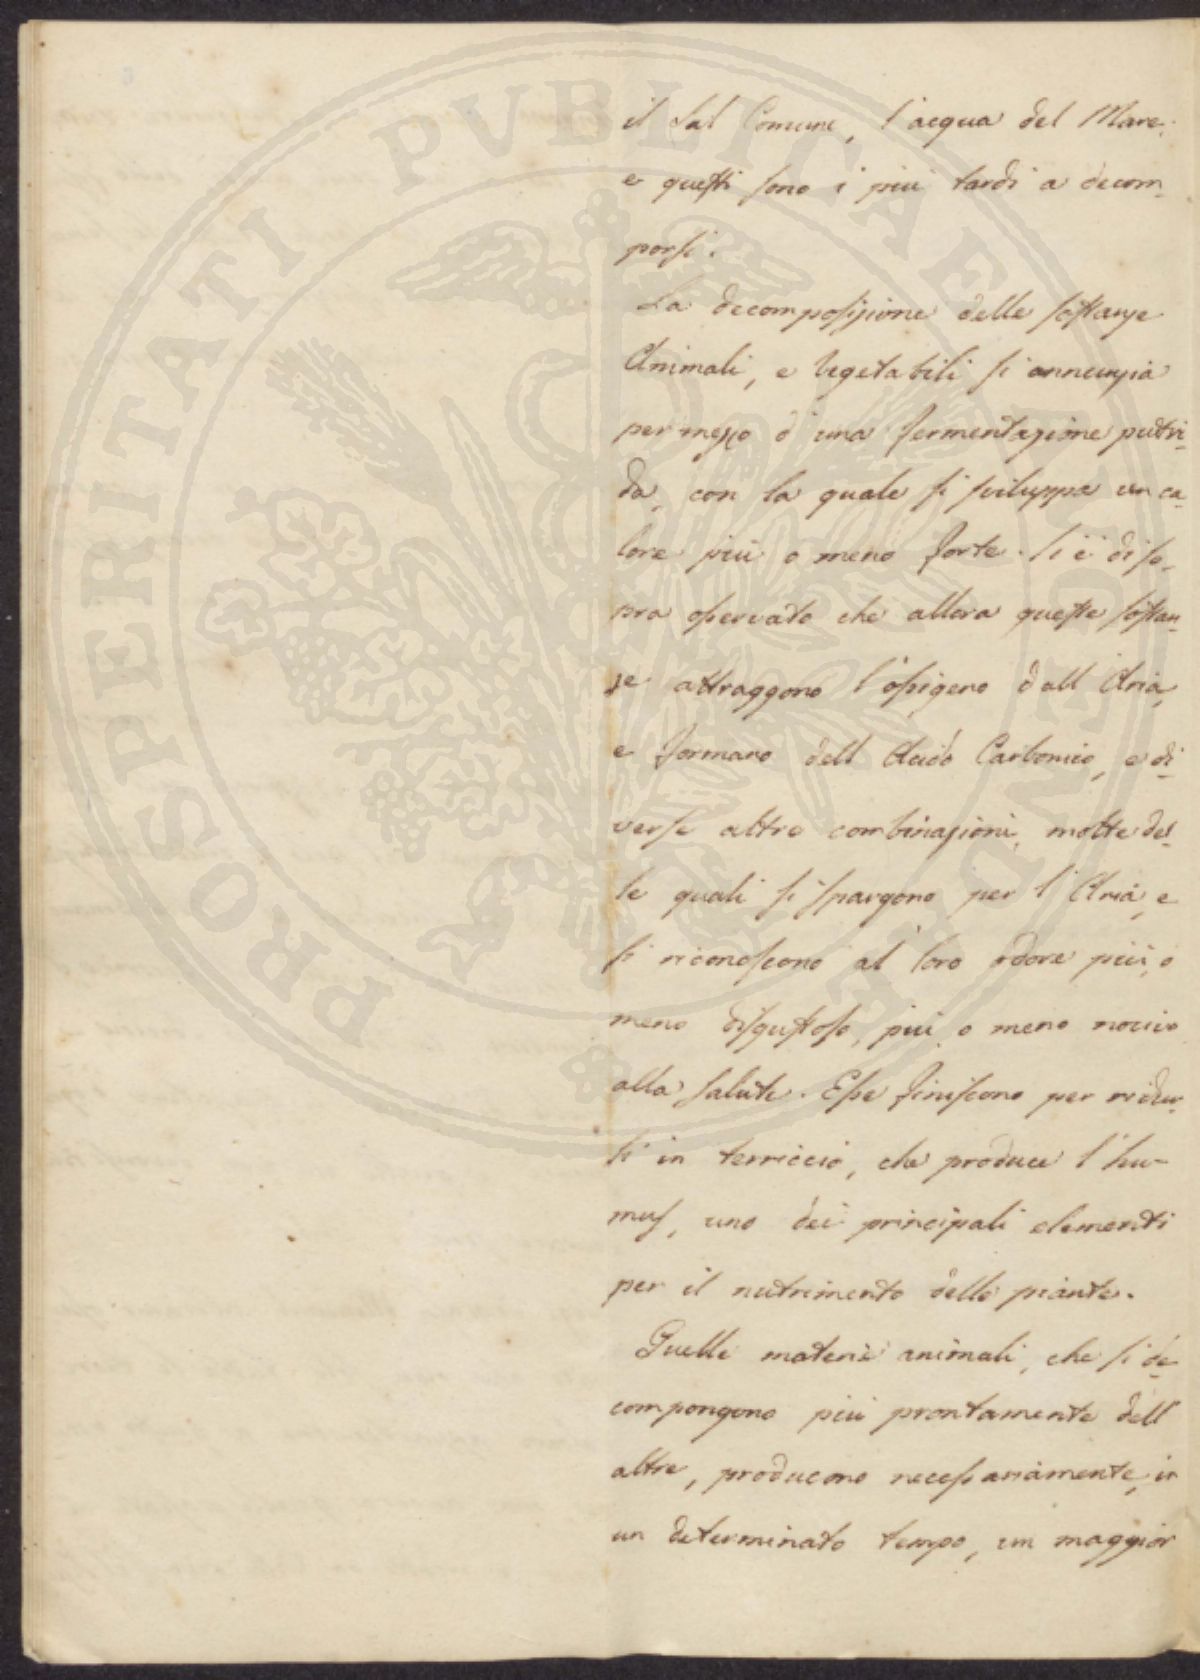 il Sal Comune, l'acqua del Mare.
e questi sono i più tardi a decom-
porsi.
La decomposizione delle sostanze
Animali, e Vegetabili si annunzia
per mezzo d'una fermentazione putri-
da, con la quale si sviluppa un ca-
lore più o meno forte. Si è di so-
pra osservato che allora queste sostan-
ze attraggono l'ossigeno dall'Aria,
e formano dell'Acido Carbonico, e di-
verse altre combinazioni, molte del-
le quali si spargono per l'Aria, e
si riconoscono al loro odore più, o
meno disgustoso, più o meno nocivo
alla salute. Esse finiscono per ridur-
si in terriccio, che produce l'hu-
mus, uno dei principali elementi
per il nutrimento delle piante.
Quelle materie animali, che si de-
compongono più prontamente dell'
altre, producono necessariamente, in
un determinato tempo, un maggior
PROSPERITATI PVBLICAE AVGENDAE